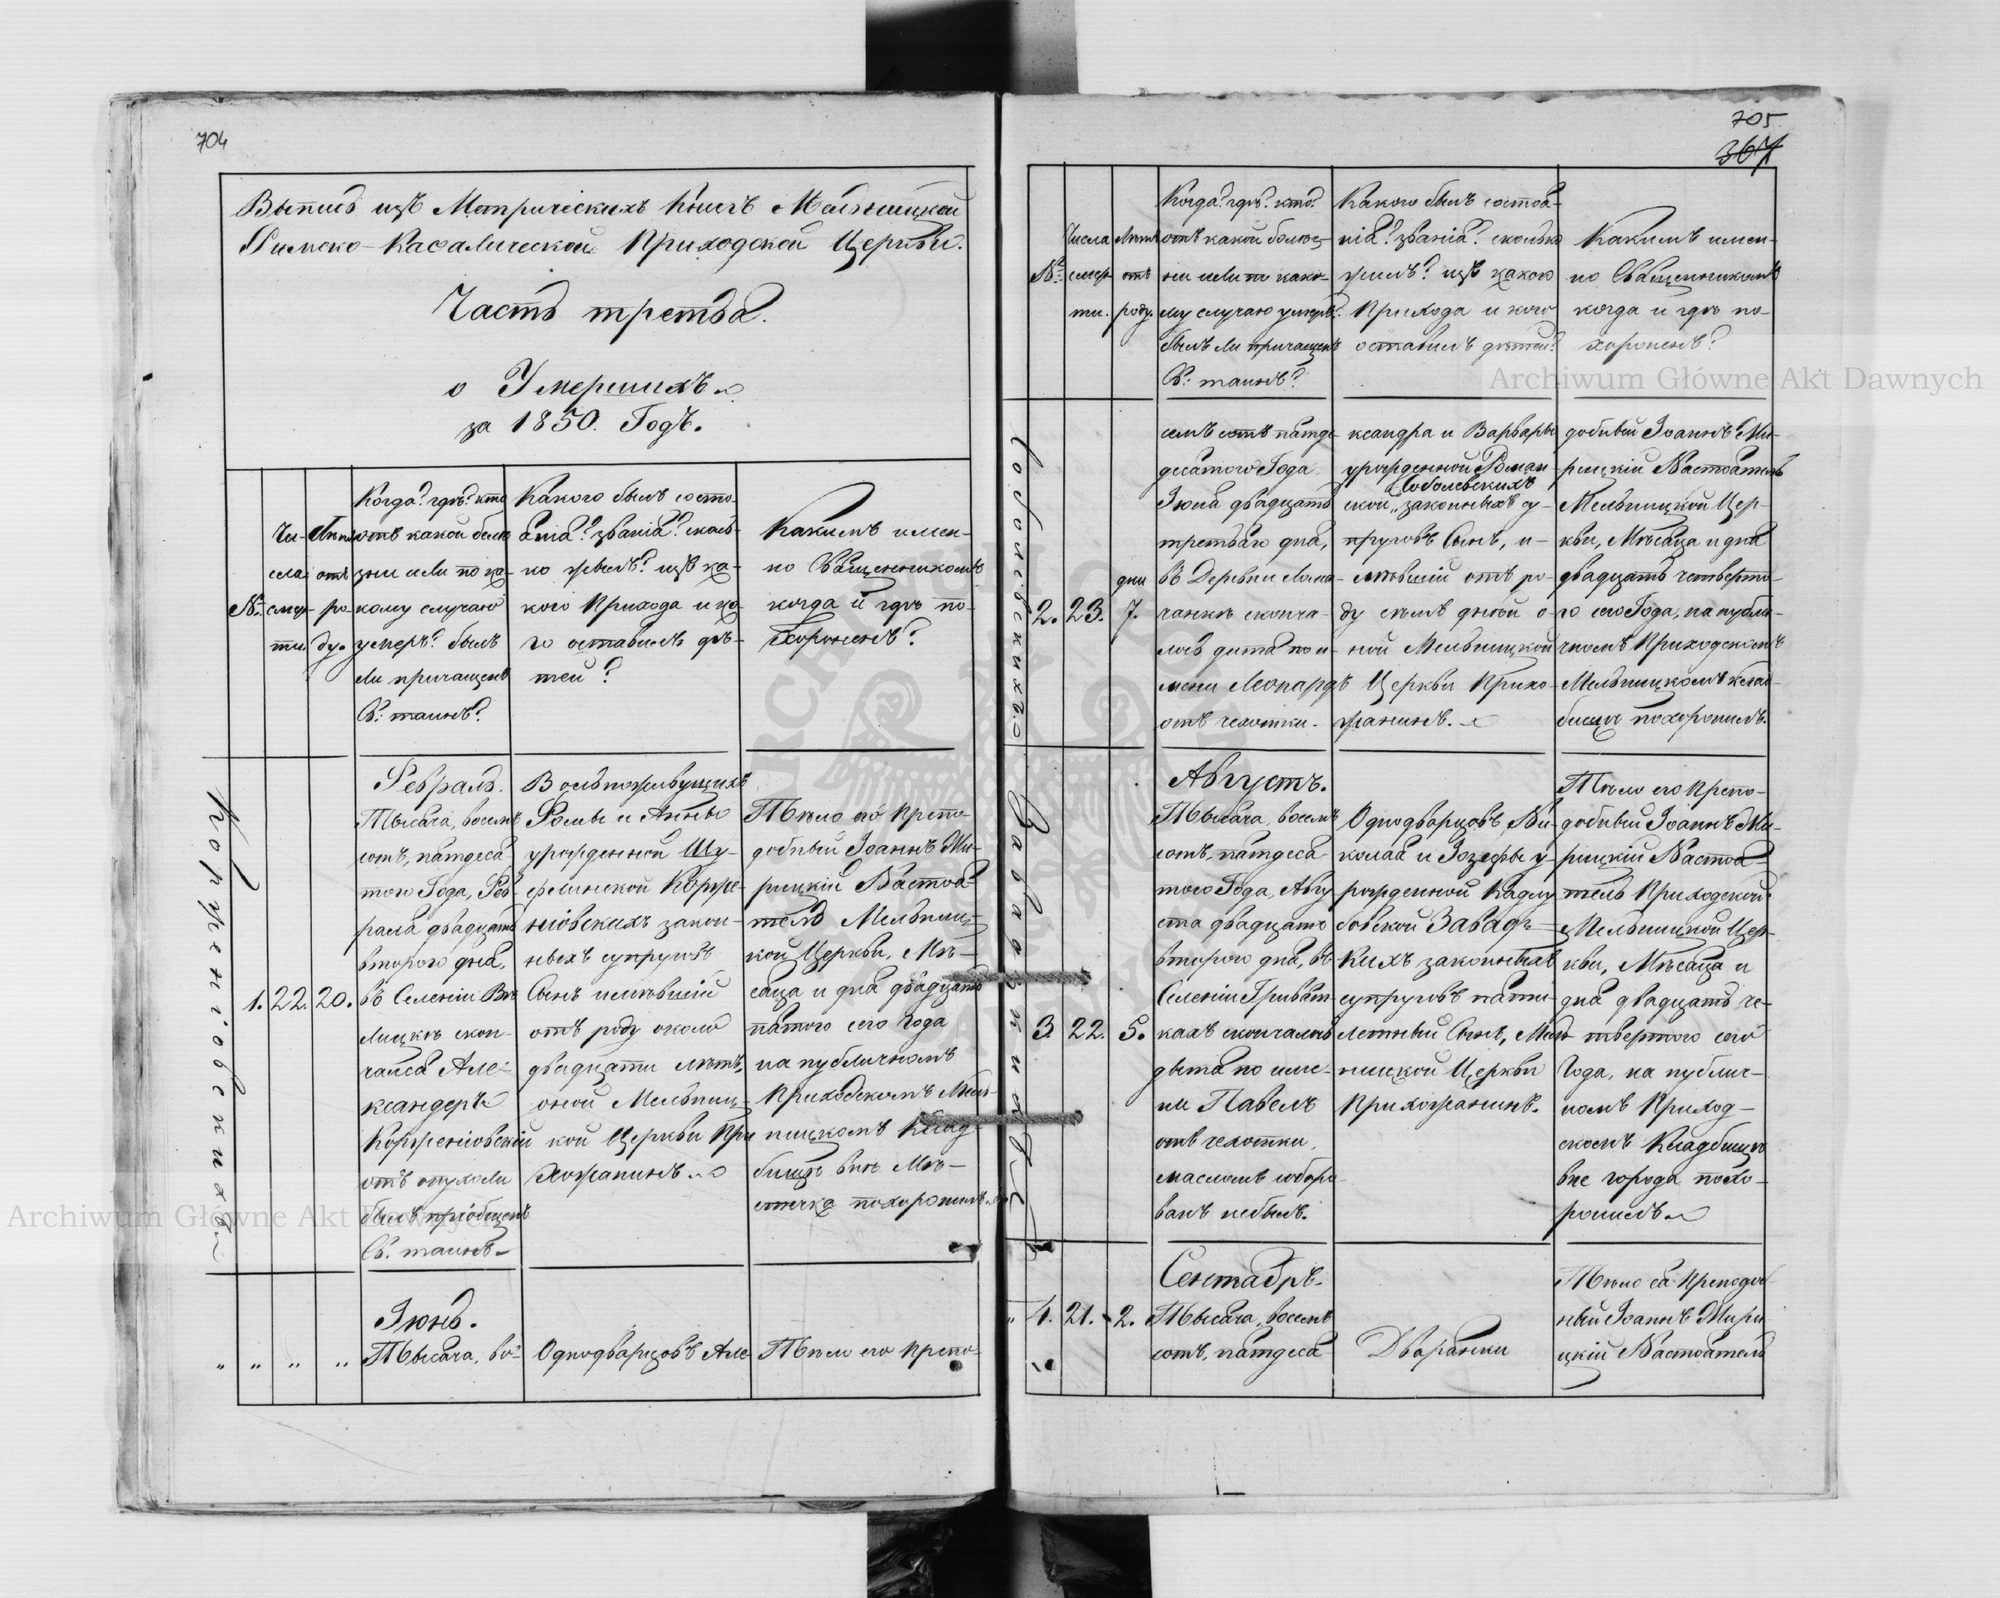 704
Выпись изъ Метрическихъ Книгъ Мельницкой
Римско-Каѳалической Приходской Церкви.
Часть третья.
о Умершихъ
за 1850. Годъ.
№
Чи-
сла
смер-
ти.
Лѣта
отъ
ро-
ду.
Когда? гдѣ? кто
отъ какой болѣ-
зни или по ка-
кому случаю
умеръ? былъ
ли причащенъ
Св: таинъ?
Какого былъ состо-
янія? званія? сколь-
ко жилъ? изъ ка-
кого Прихода и ко-
го оставилъ дѣ-
тей?
Какимъ имен-
но Священникомъ
когда и гдѣ по-
хороненъ?
Корженіовскихъ
1. 22. 20.
Февраль.
Тысяча, восемъ
сотъ, пятдеся
того Года, Фев
раля двадцать
второго дня,
въ Селеніи Ви
лицкѣ скон-
чался Але-
ксандеръ
Корженіовскій
отъ опухоли
былъ пріобщенъ
Св. таинъ
Вольноживущихъ
Фомы и Анны
урожденной Шу-
финской Корже-
ніовскихъ закон-
ныхъ супруговъ
Сынъ имѣвшій
отъ роду около
двадцати лѣтъ,
оной Мельниц-
кой Церкви При
хожанинъ.
Тѣло его Препо-
добный Іоаннъ Ми-
рицкій Настоя-
тель Мельниц-
кой Церкви, Мѣ-
сяца и дня двадцать
пятого сего Года
на публичномъ
Приходскомъ Мель-
ницкомъ Клад-
бищѣ внѣ Мѣ-
стечка похоронилъ
" " " "
Іюнь.
Тысяча, во-
Однодварцовъ Але
Тѣло его Препо-
705
367
№
Числа
смер-
ти.
Лѣта
отъ
роду.
Когда? гдѣ? кто?
отъ какой болѣз-
ни или по како-
му случаю умеръ?
былъ ли причащенъ
Св: таинъ?
Какого былъ состоя-
нія? званія? сколько
жилъ? изъ какого
Прихода и кого
оставилъ дѣтей?
Какимъ имен-
но Священникомъ
когда и гдѣ по-
хороненъ?
Соболевскихъ
2. 23.
дни
7.
семъ сотъ пятде
десятого Года
Іюня двадцать
третьяго дня,
въ Деревни Лома-
чанкѣ сконча-
лось дитя по и-
мени Леонардъ
отъ чехотки.
ксандра и Варвары
урожденной Роман-
ской Соболевскихъ законныхъ су-
пруговъ Сынъ, и-
мѣвшій отъ ро-
ду семъ дней о-
ной Мельницкой
Церкви Прихо-
жанинъ.
добный Іоаннъ Ми-
рицкій Настоятель
Мельницкой Цер-
кви, Мѣсяца и дня
двадцать четверто-
го сего Года, на публи-
чномъ Приходскомъ
Мельницкомъ клад-
бищѣ похоронилъ.
Завадзкихъ
3 22. 5.
Августъ.
Тысяча, восемъ
сотъ, пятдеся
того Года, Авгу
ста двадцать
второго дня, въ
Селеніи Грибат-
кахъ скончалось
дытя по име-
ни Павелъ
отъ чехотки,
масломъ соборо-
ванъ небылъ.
Однодварцовъ Ни-
колая и Іозефы у-
рожденной Кадлу
бовской Завадз-
кихъ законныхъ
супруговъ пяти-
летный Сынъ, Мель
ницкой Церкви
Прихожанинъ.
Тѣло его Препо-
добный Іоаннъ Ми-
рицкій Настоя
тель Приходской
Мельницкой Цер-
кви, Мѣсяца и
дня двадцать че-
твертого сего
Года, на публич-
номъ Приход-
скомъ Кладбищѣ
вне города похо-
ронилъ
" 4. 21. 2.
Сентябрь.
Тысяча, восемъ
сотъ, пятдеся
Дварянки
Тѣло ея Преподоб
ный Іоаннъ Мири
цкій Настоятель
Archiwum Główne Akt Dawnych
Archiwum Główne Akt Dawnych